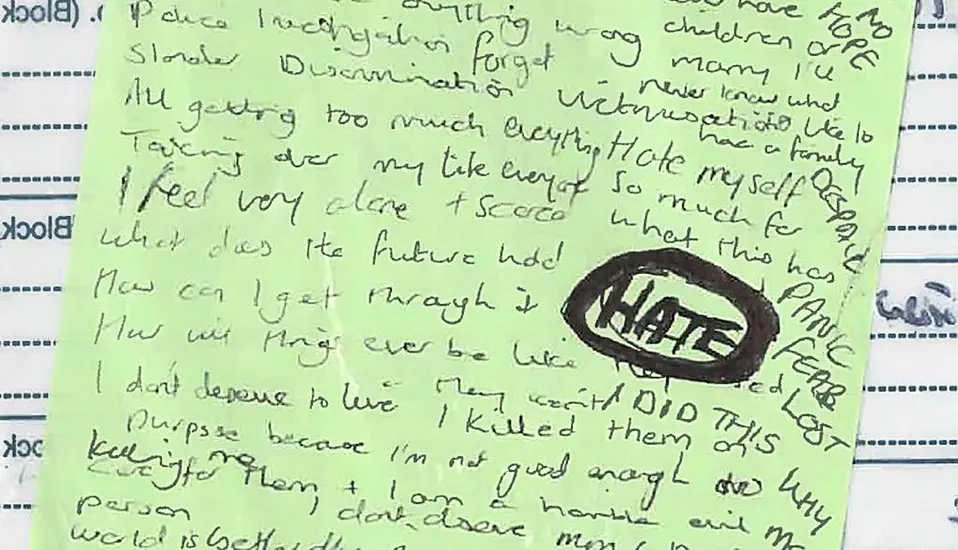 anything wrong
have
NO
HOPE
Police Investigation forget
children or
marry I'll
Slander Discrimination
never know what
like to
have a family
All getting too much everything
Hate myself
DESPAIR
Taking over my life everyday
so much for
I feel very alone + scared
what this has
what does the future hold
PANIC
How can I get through it
HATE
FEAR
How will things ever be like
LOST
I don't deserve to live They went
I DID THIS
I killed them on
purpose because I'm not good enough
WHY
killing me
care for them, + I am a horrible evil
ME
person I don't deserve
world is better
(Block
Block